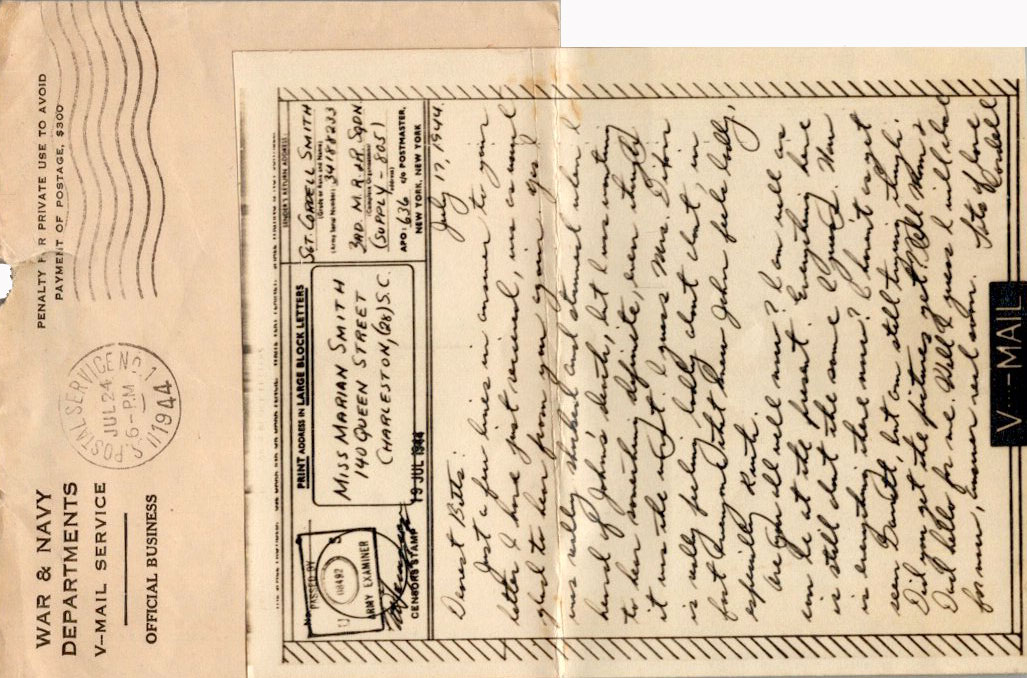 WAR & NAVY
DEPARTMENTS
V-MAIL SERVICE
OFFICIAL BUSINESS
PENALTY F R PRIVATE USE TO AVOID
PAYMENT OF POSTAGE, $300
U.S. POSTAL SERVICE NO. 1
JUL 24
6-PM
1944
PRINT ADDRESS IN LARGE BLOCK LETTERS
SENDER'S RETURN ADDRESS
PASSED BY
U S
08492
ARMY EXAMINER
CENSOR'S STAMP
MISS MARIAN SMITH
140 QUEEN STREET
CHARLESTON, (28) S.C.
19 JUL 1944
SGT. CORDELL SMITH
34188233
3RD. M.R.&R. SQDN
(SUPPLY - 805)
APO: 636 c/o POSTMASTER,
NEW YORK, NEW YORK
July 17, 1944.
Dearest Bitts:
Just a few lines in answer to your
letter I have just received, was as usual
glad to hear from you again. Yes I
was really shocked and stunned when I
heard of John's death, but I was waiting
to hear something definite, even tho
it was the worst. I guess Mrs. Dixon
is really feeling badly about that, in
fact everyone that knew John feels badly,
especially
Are you all well now? I am well as
can be at the present. Everything here
is still about the same I guess. How
is everything there now? I haven't as yet
seen but am still trying though.
Did you get the pictures yet? Tell Mom &
Dad hello for me. Well I guess I will close
for now, answer real soon. Lots of love
Cordell
V···—MAIL